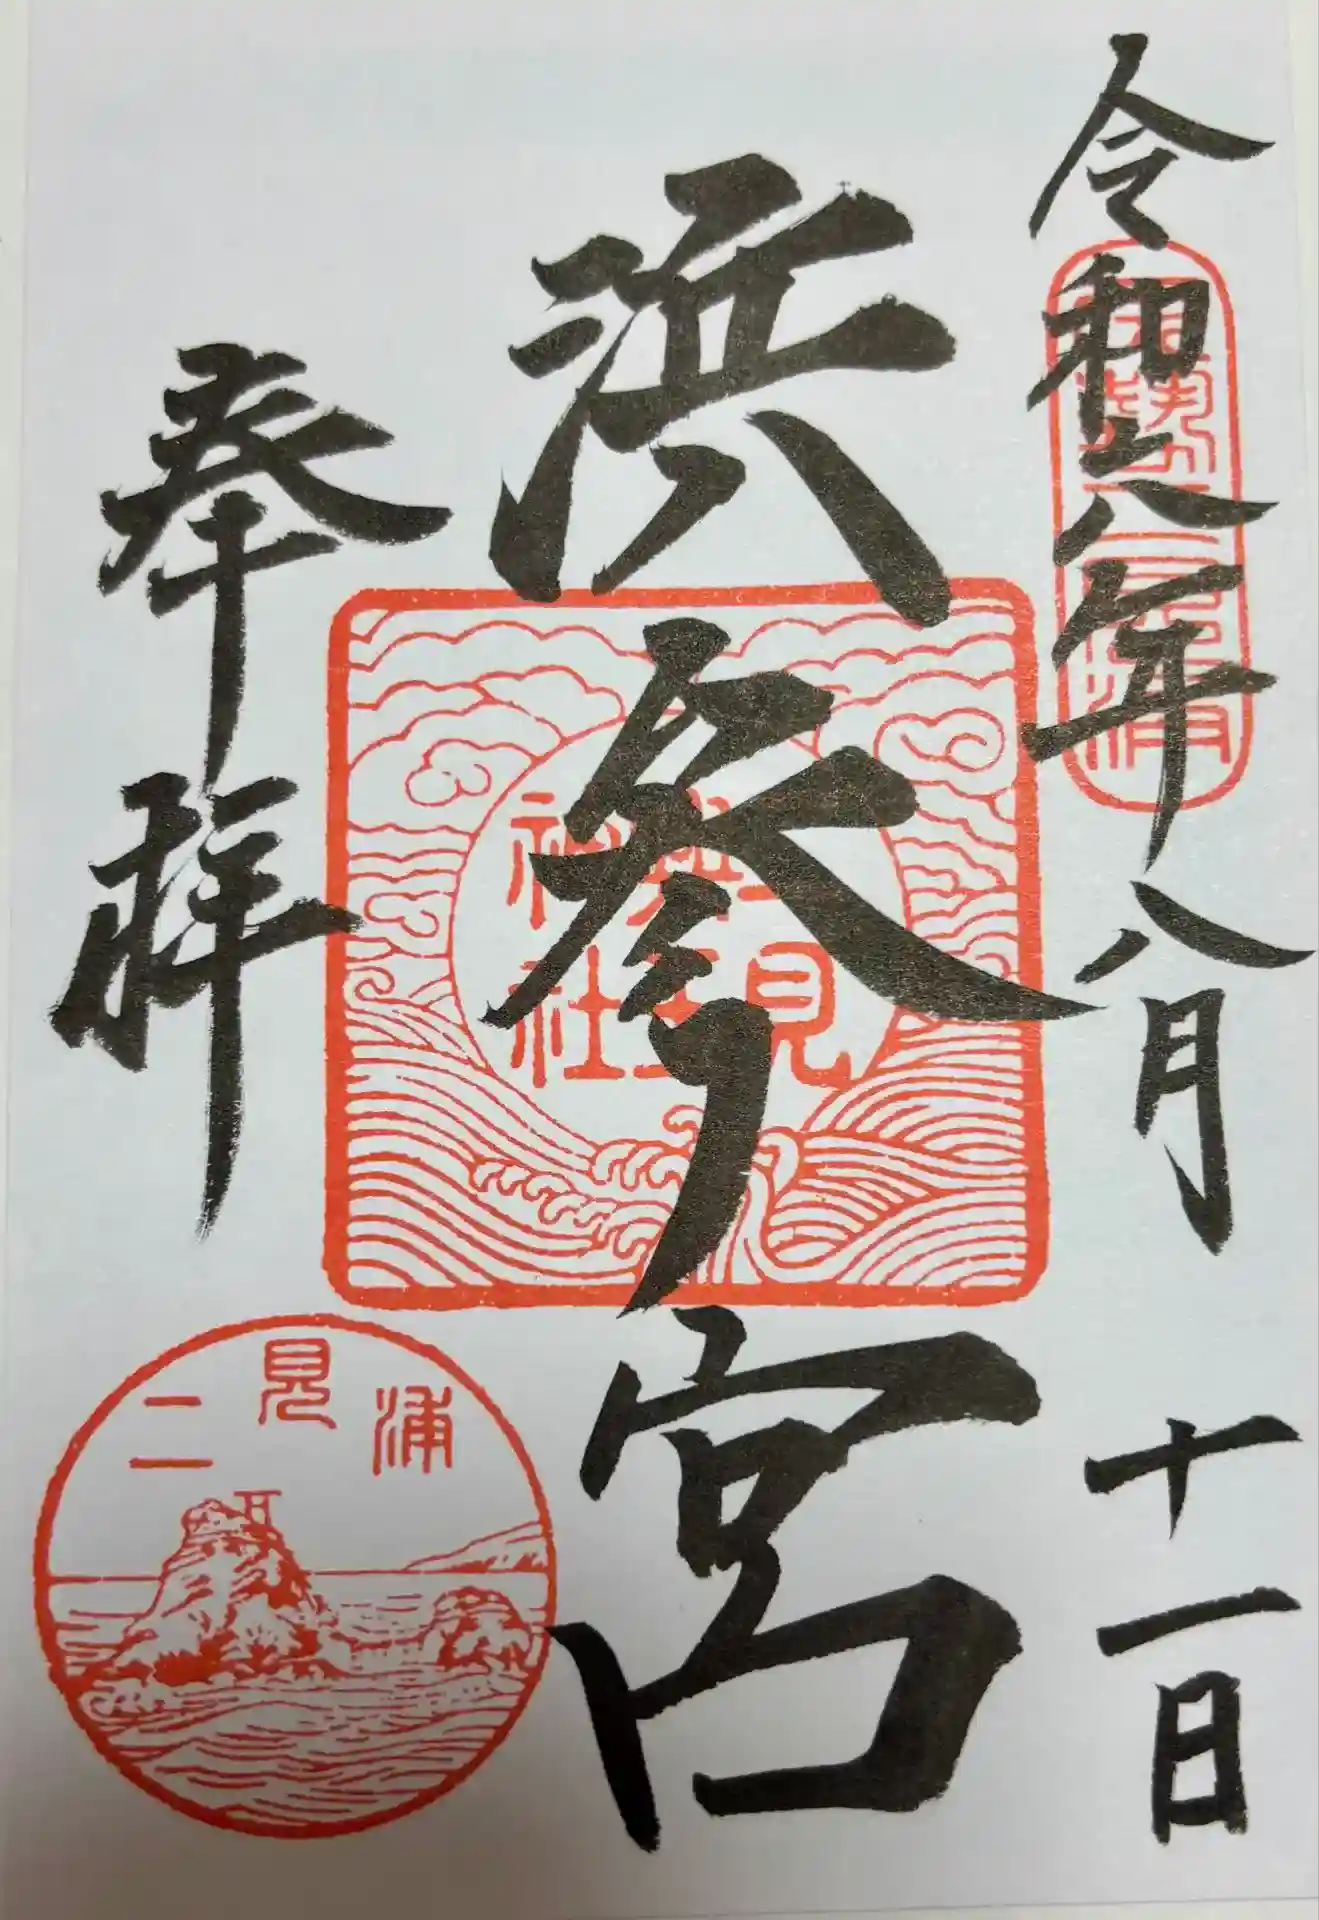 令和八年八月十一日
伊勢二見浦
浜参宮
二見興玉神社
奉拝
二見浦